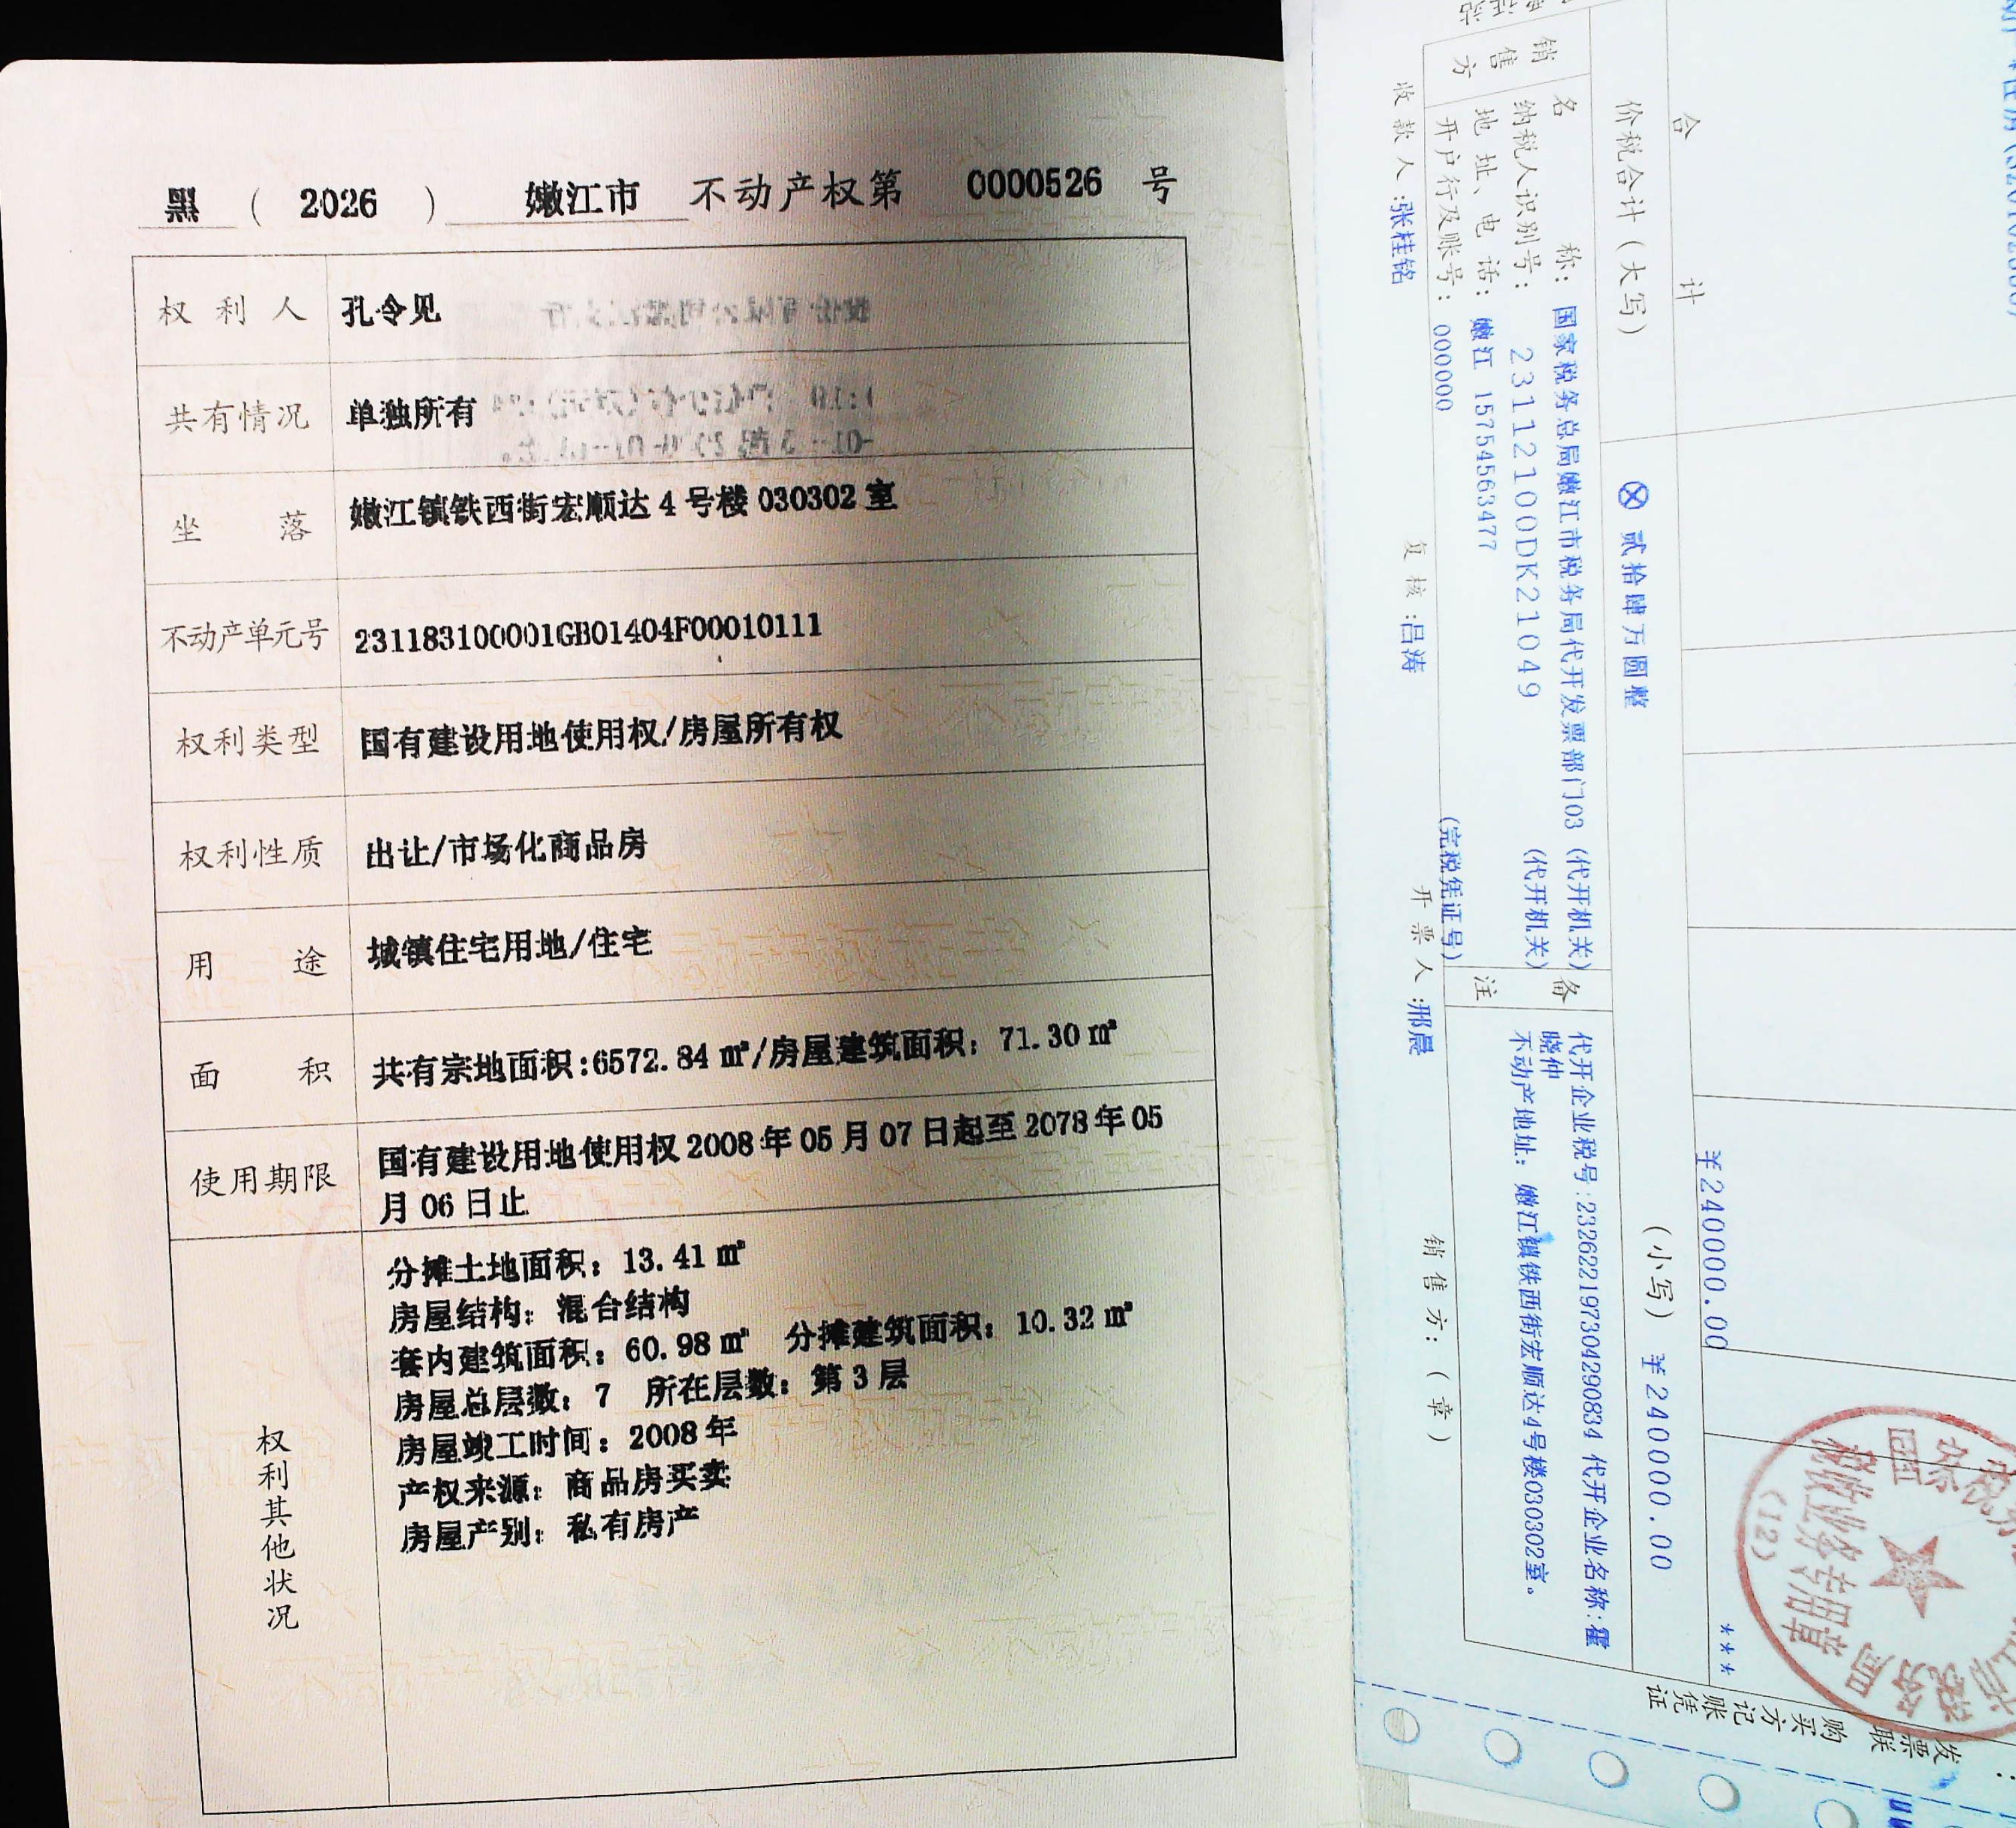 黑 ( 2026 ) 嫩江市 不动产权第 0000526 号
权利人 孔令见
共有情况 单独所有
坐落 嫩江镇铁西街宏顺达 4 号楼 030302 室
不动产单元号 231183100001GB01404F00010111
权利类型 国有建设用地使用权/房屋所有权
权利性质 出让/市场化商品房
用途 城镇住宅用地/住宅
面积 共有宗地面积:6572.84 ㎡/房屋建筑面积：71.30 ㎡
使用期限 国有建设用地使用权 2008 年 05 月 07 日起至 2078 年 05
月 06 日止
权利其他状况
分摊土地面积：13.41 ㎡
房屋结构：混合结构
套内建筑面积：60.98 ㎡ 分摊建筑面积：10.32 ㎡
房屋总层数：7 所在层数：第 3 层
房屋竣工时间：2008 年
产权来源：商品房买卖
房屋产别：私有房产
合计 ¥240000.00 ***
价税合计(大写) ⊗ 贰拾肆万圆整 (小写) ¥240000.00
销售方
名称：国家税务总局嫩江市税务局代开发票部门03 (代开机关)
纳税人识别号：23112100DK21049 (代开机关)
地址、电话：嫩江 15754563477
开户行及账号：000000 (完税凭证号)
备注
代开企业税号:232622197304290834 代开企业名称:霍
晓仲
不动产地址：嫩江镇铁西街宏顺达4号楼030302室。
收款人:张桂铭 复核:吕涛 开票人:邢晨 销售方:(章)
发票联 购买方记账凭证
税收业务专用章
(12)